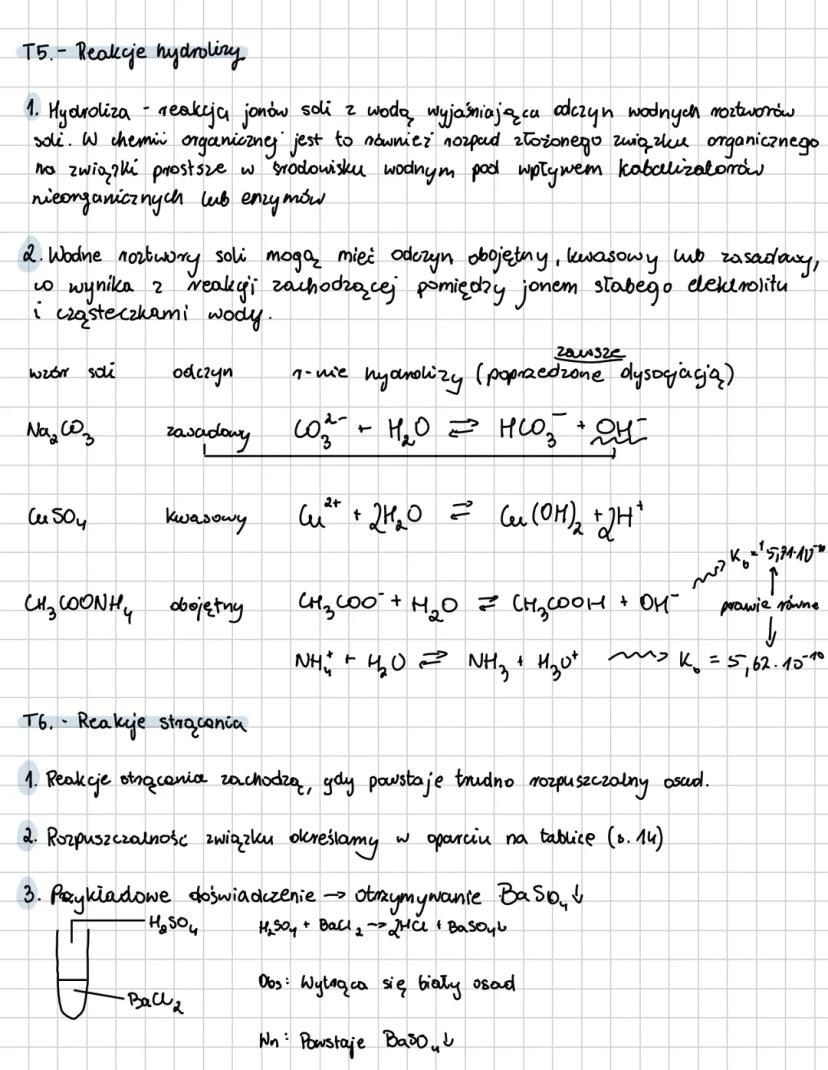 T5. - Reakcje hydrolizy
1. Hydroliza - reakcja jonów soli z wodą wyjaśniająca odczyn wodnych roztworów
soli. W chemii organicznej jest to również rozpad złożonego związku organicznego
na związki prostsze w środowisku wodnym pod wpływem katalizatorów
nieorganicznych lub enzymów
2. Wodne roztwory soli mogą mieć odczyn obojętny, kwasowy lub zasadowy,
co wynika z reakcji zachodzącej pomiędzy jonem słabego elektrolitu
i cząsteczkami wody.
zawsze
wzór soli odczyn r-nie hydrolizy (poprzedzone dysocjacją)
Na₂CO₃ zasadowy CO₃²⁻ + H₂O ⇌ HCO₃⁻ + OH⁻
CuSO₄ kwasowy Cu²⁺ + 2H₂O ⇌ Cu(OH)₂ + 2H⁺
CH₃COONH₄ obojętny CH₃COO⁻ + H₂O ⇌ CH₃COOH + OH⁻
prawie równe
NH₄⁺ + H₂O ⇌ NH₃ + H₃O⁺ K_b = 5,62·10⁻¹⁰
T6. - Reakcje strącania
1. Reakcje strącania zachodzą, gdy powstaje trudno rozpuszczalny osad.
2. Rozpuszczalność związku określamy w oparciu na tablice (s. 14)
3. Przykładowe doświadczenie → otrzymywanie BaSO₄↓
H₂SO₄ H₂SO₄ + BaCl₂ → 2HCl + BaSO₄↓
Obs: Wytrąca się biały osad
BaCl₂
Wn: Powstaje BaSO₄↓